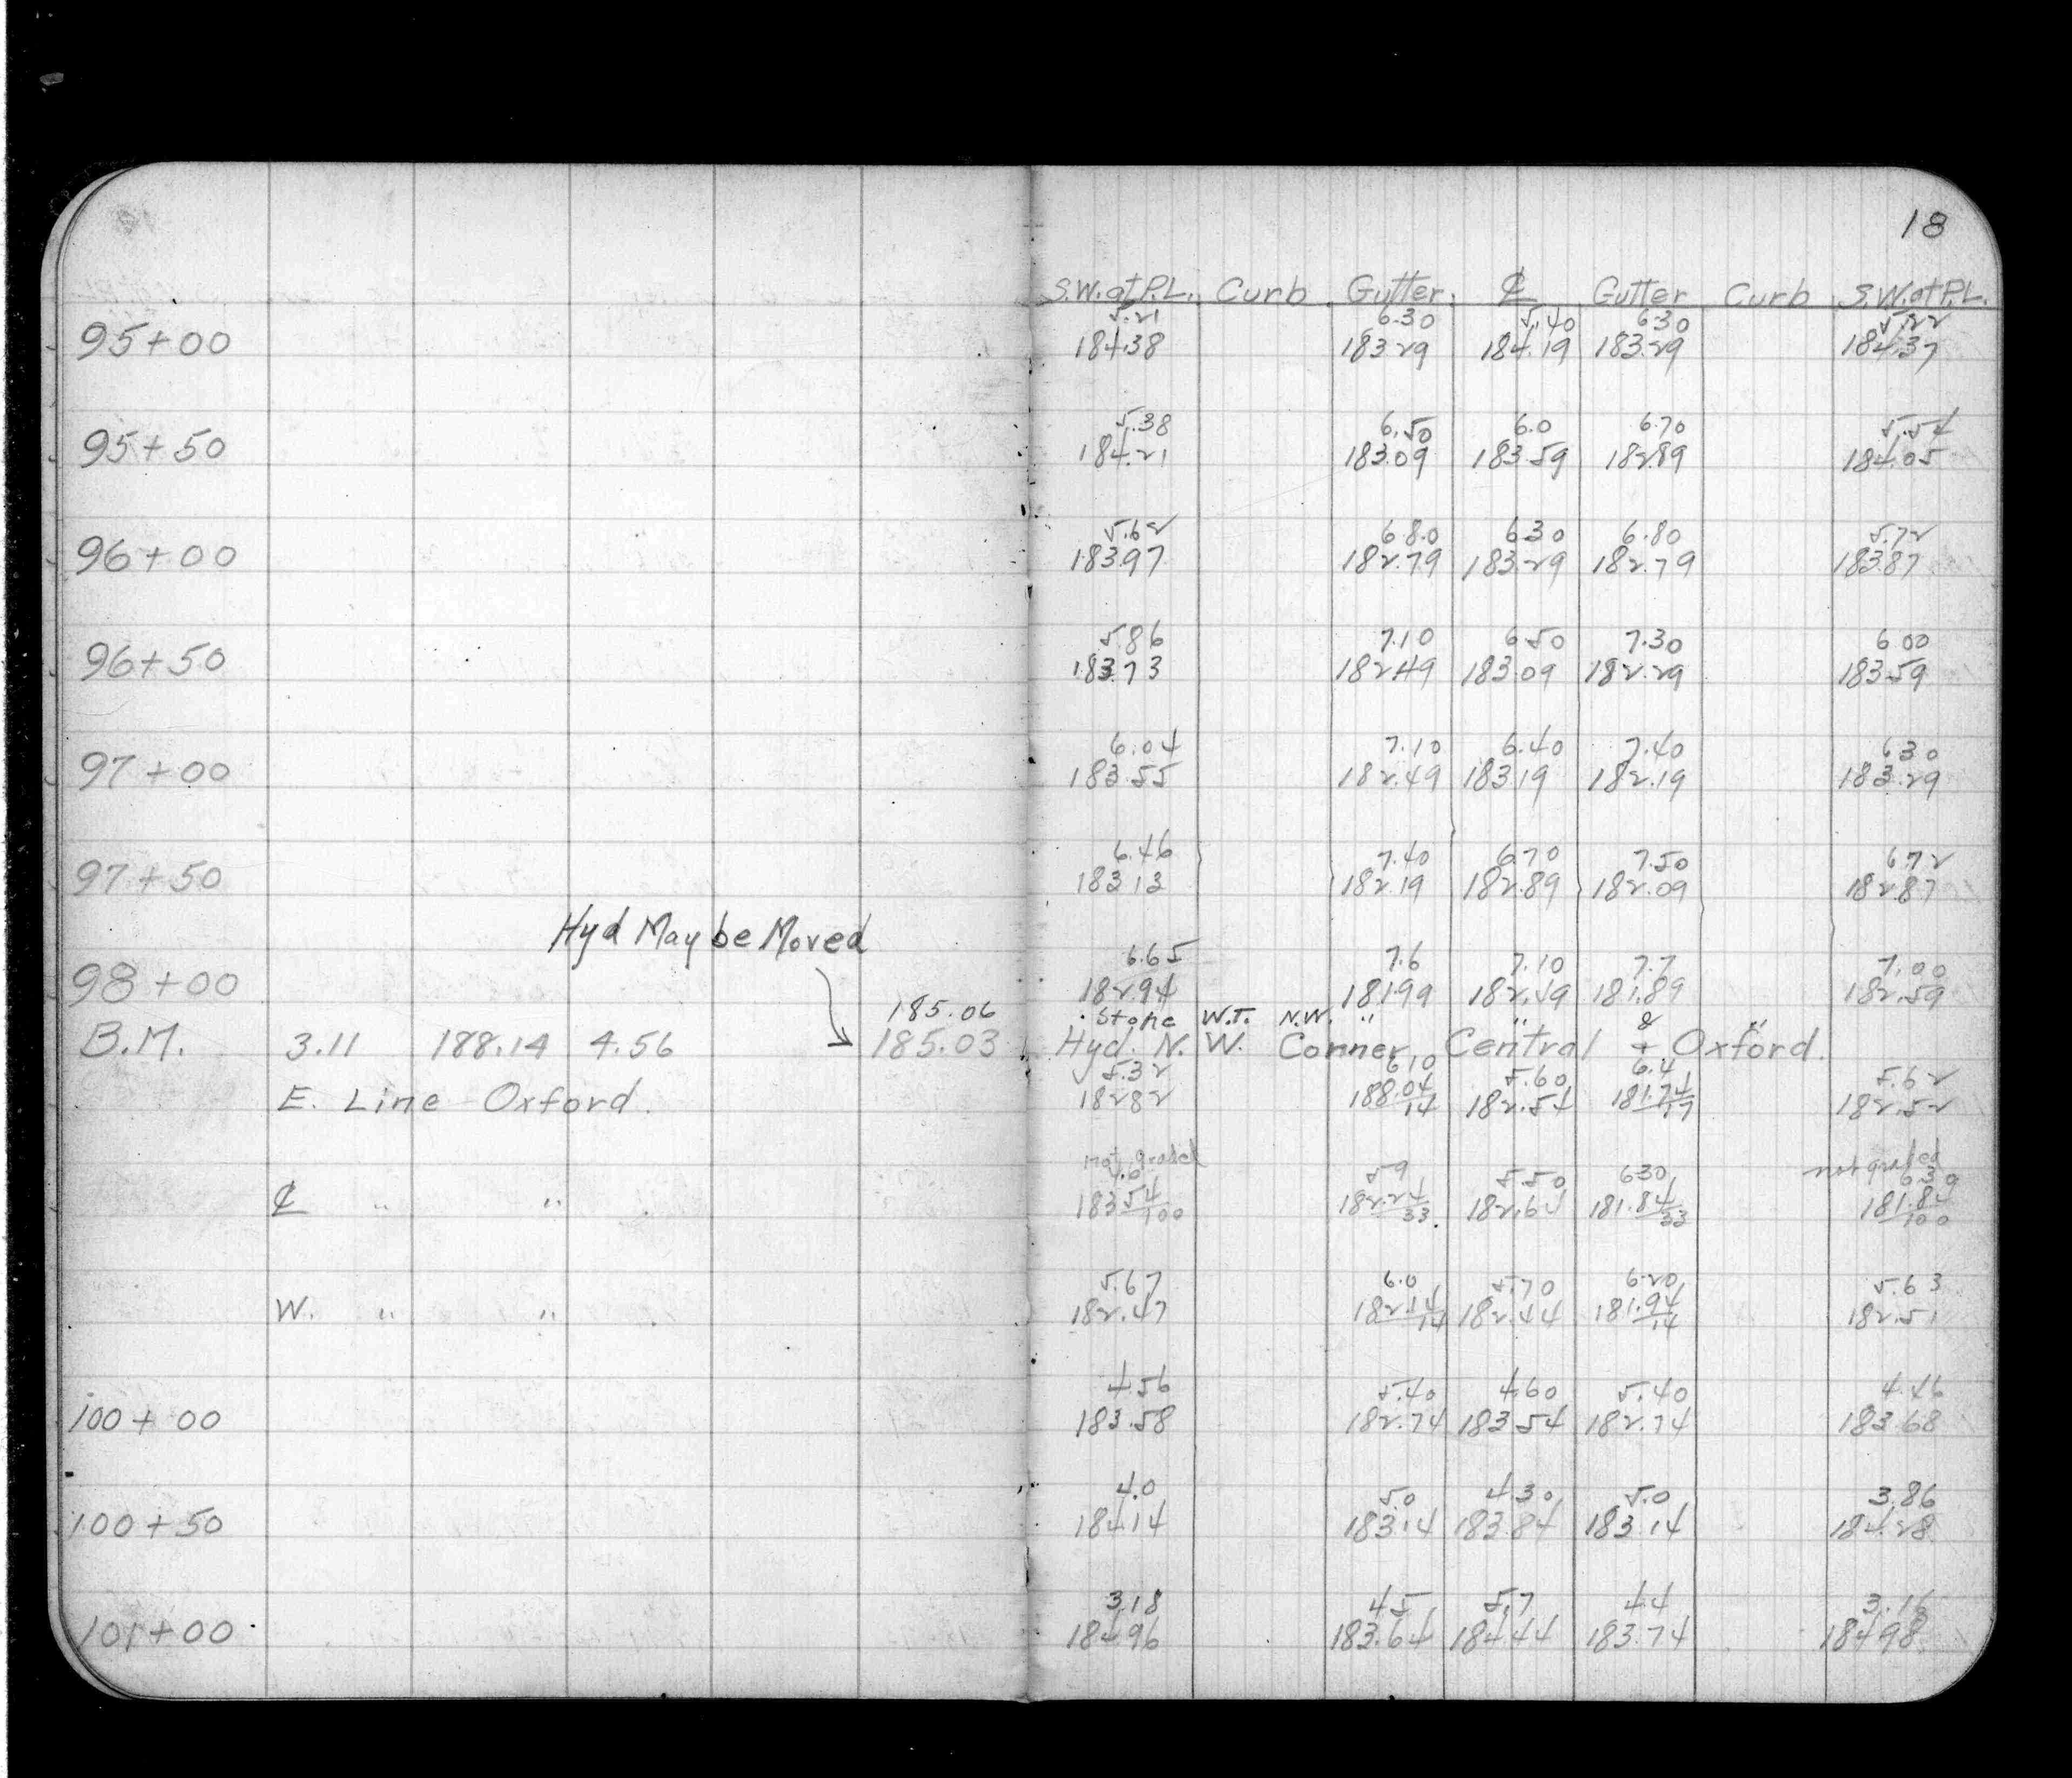 18
S.W. at P.L. Curb Gutter ℄ Gutter Curb S.W. at P.L.
5.21 6.30 5.40 6.30 5.22
95+00 184.38 183.29 184.19 183.29 184.37
5.38 6.50 6.0 6.70 5.54
95+50 184.21 183.09 183.59 182.89 184.05
5.62 6 8.0 6.30 6.80 5.72
96+00 183.97 182.79 183.29 182.79 183.87
5.86 7.10 6.50 7.30 6.00
96+50 183.73 182.49 183.09 182.29 183.59
6.04 7.10 6.40 7.40 6.30
97+00 183.55 182.49 183.19 182.19 183.29
6.46 7.40 6.70 7.50 6.72
97+50 183.13 182.19 182.89 182.09 182.87
Hyd May be Moved
6.65 7.6 7.10 7.7 7.00
98+00 182.94 181.99 182.49 181.89 182.59
185.06 Stone W.T. N.W. " " & "
B.M. 3.11 188.14 4.56 185.03 Hyd. N. W. Conner Central + Oxford.
5.32 6.10 5.60 6.4 5.62
E. Line Oxford. 182.82 188.04/14 182.54 181.74/17 182.52
not graded not graded
4.6 5.9 5.50 6.30 6.30
℄ " " 183.54/100 182.24/33 182.64 181.84/33 181.84/100
5.67 6.0 5.70 6.20 5.63
W. " " 182.47 182.14/14 182.44 181.94/14 182.51
4.56 5.40 4.60 5.40 4.46
100+00 183.58 182.74 183.54 182.74 183.68
4.0 5.0 4.30 5.0 3.86
100+50 184.14 183.14 183.84 183.14 184.28
3.18 4.5 5.7 4.4 3.16
101+00 184.96 183.64 184.44 183.74 184.98